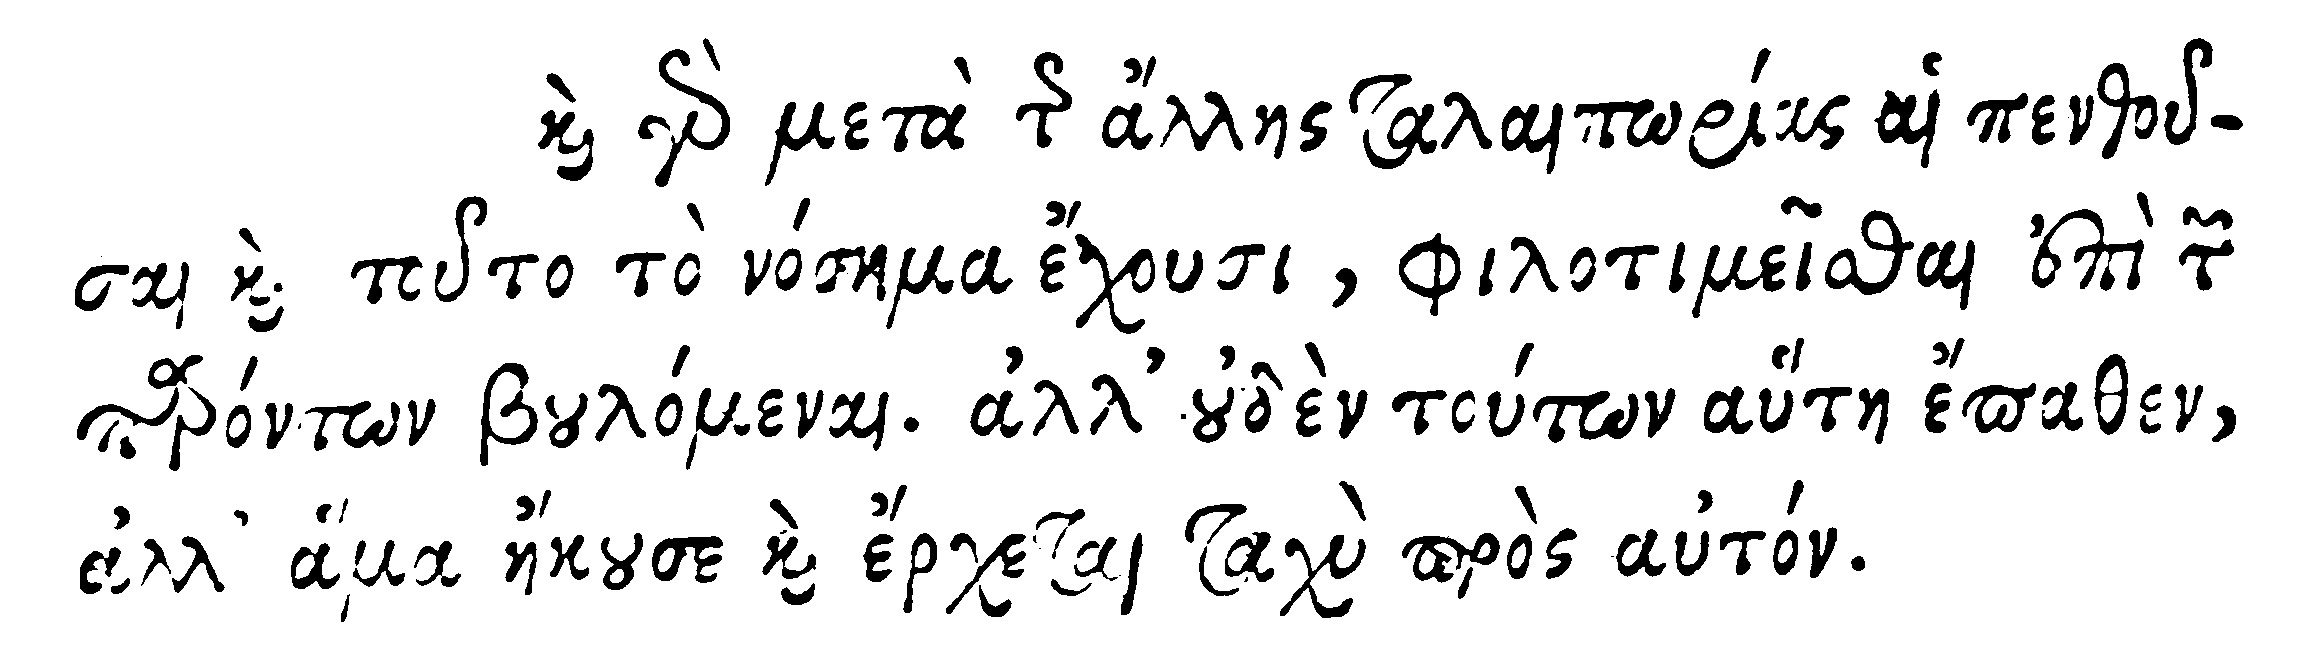 καὶ γὰρ μετὰ τῆς ἄλλης ταλαιπωρίας αἱ πενθοῦ-
σαι καὶ τοῦτο τὸ νόσημα ἔχουσι, φιλοτιμεῖσθαι ἐπὶ τῶν
παρόντων βουλόμεναι. ἀλλ᾽ οὐδὲν τούτων αὕτη ἔπαθεν,
ἀλλ᾽ ἅμα ἤκουσε καὶ ἔρχεται ταχὺ πρὸς αὐτόν.